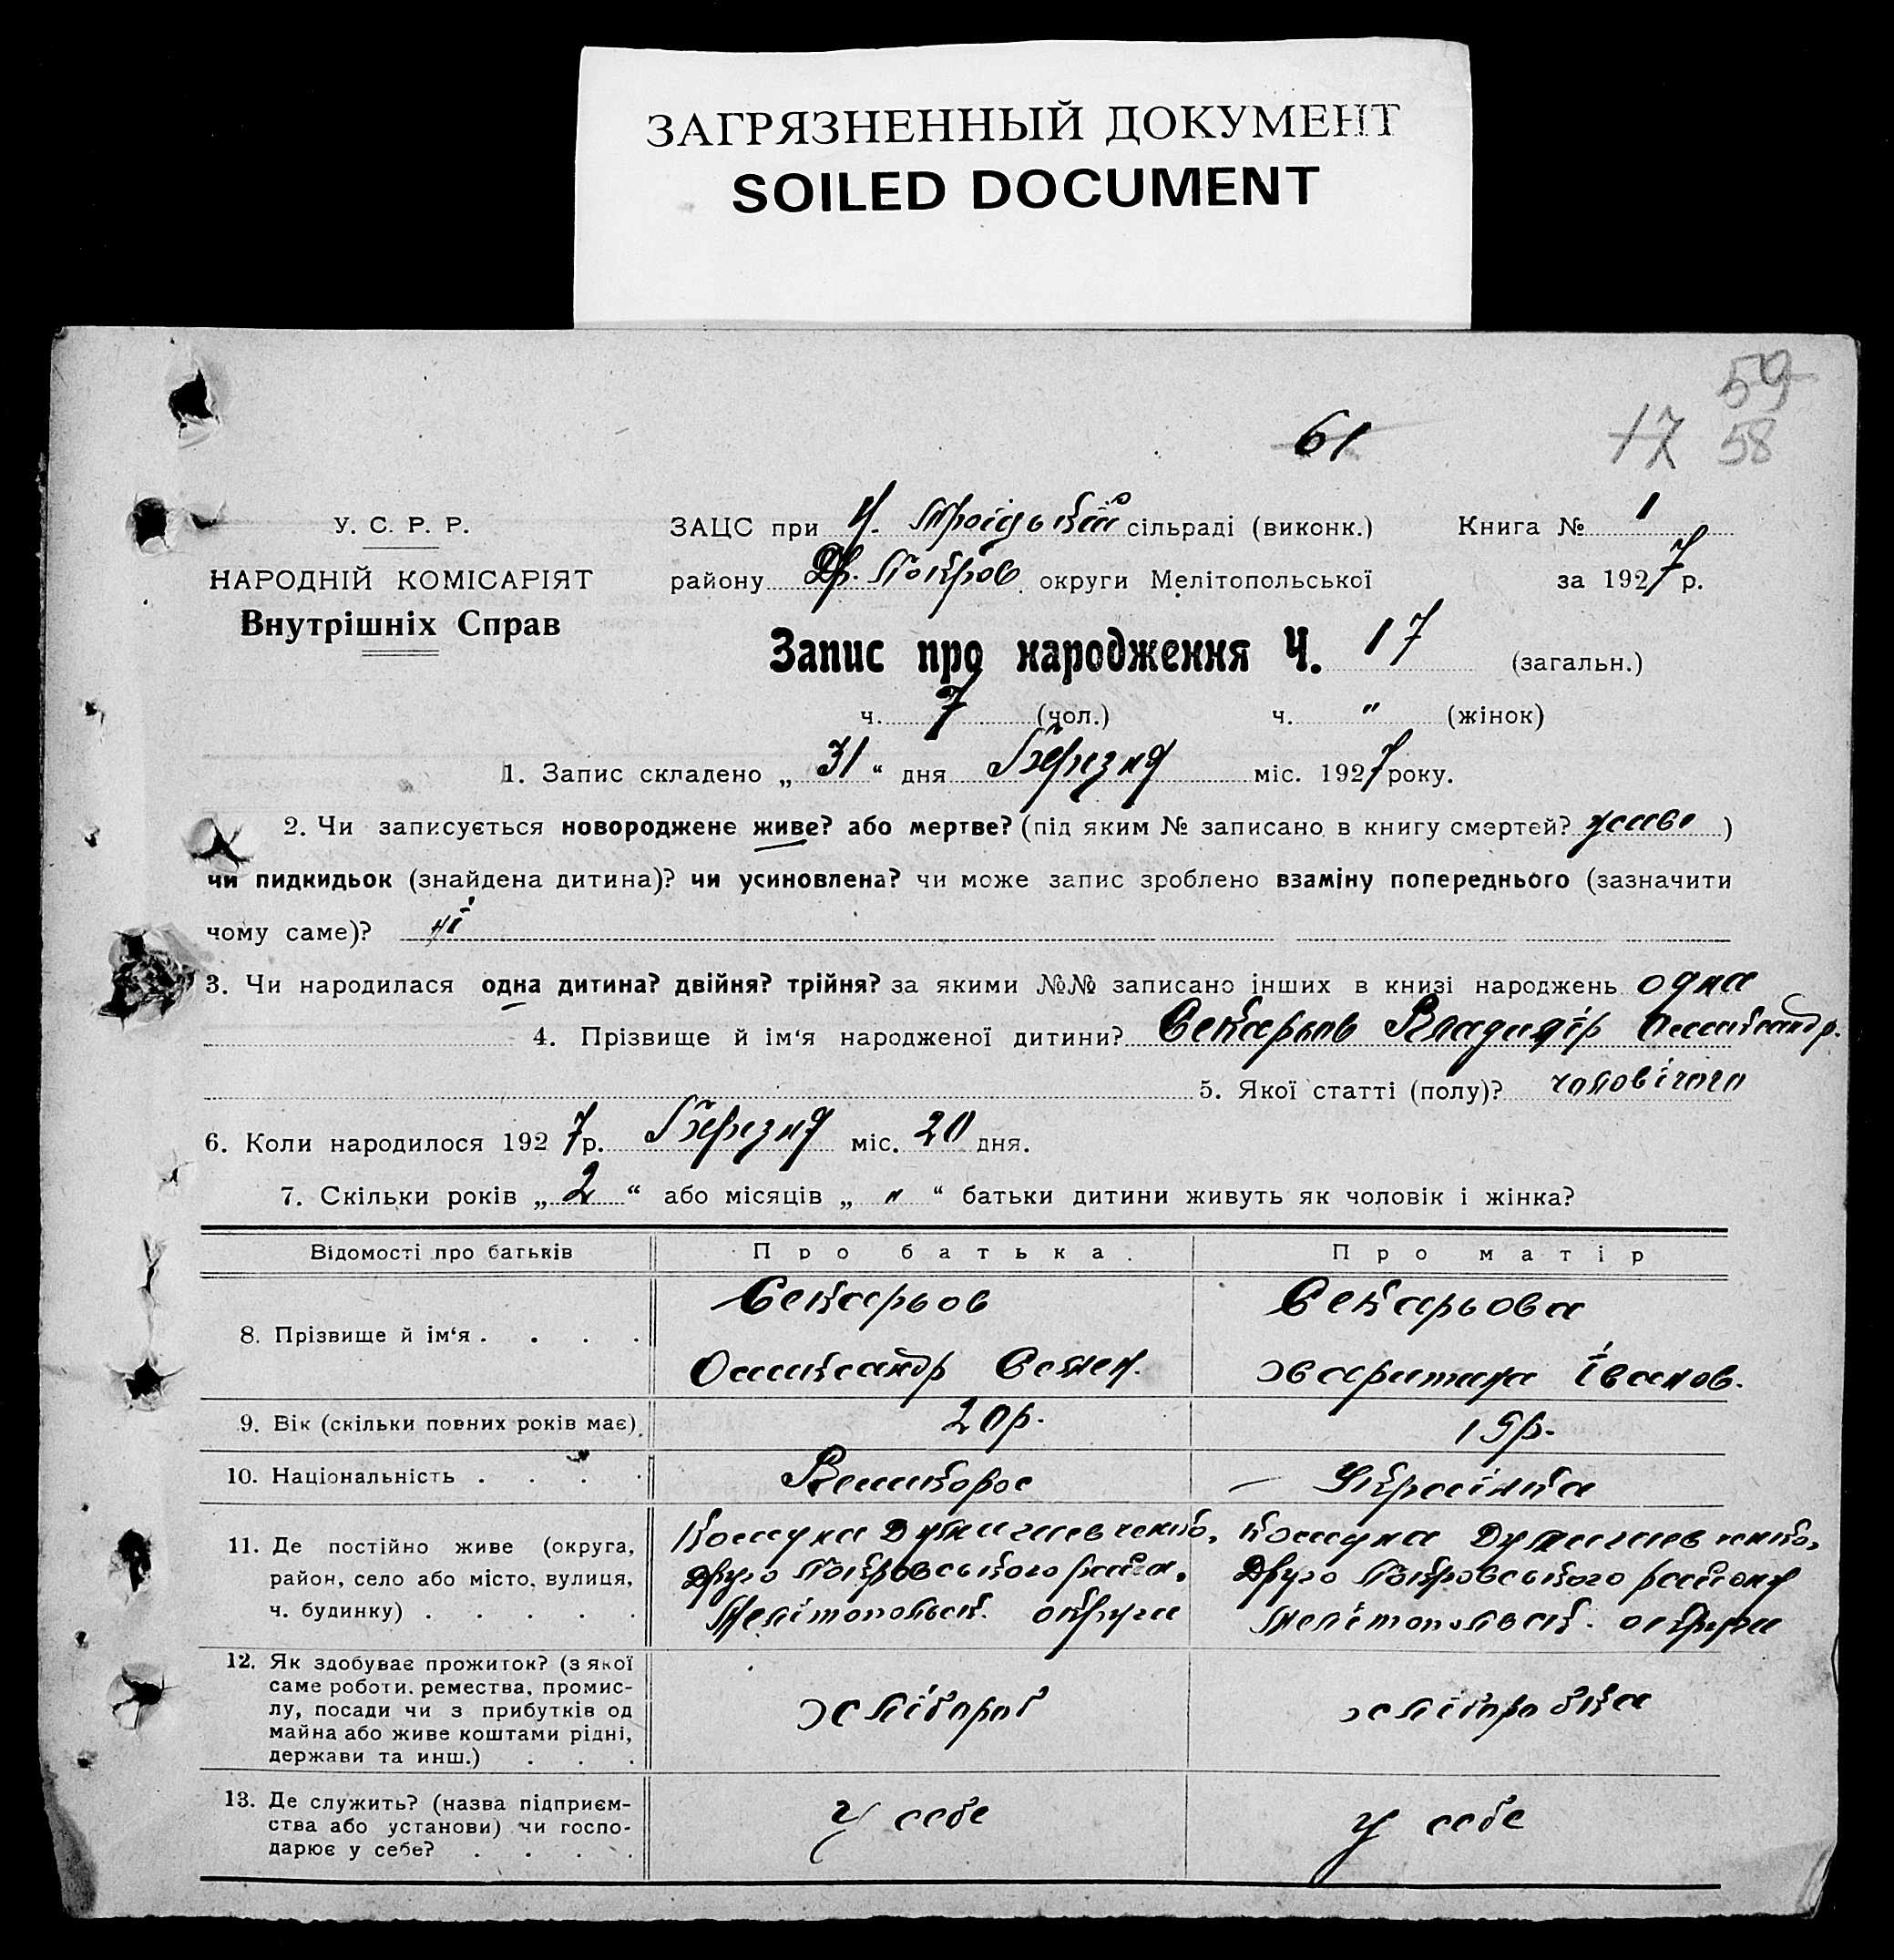 ЗАГРЯЗНЕННЫЙ ДОКУМЕНТ
SOILED DOCUMENT
59
61 17 58
У. С. Р. Р.
НАРОДНІЙ КОМІСАРІЯТ
Внутрішніх Справ
ЗАЦС при Н. Троїцькій сільраді (виконк.) Книга № 1
району Др. Покров. округи Мелітопольської за 1927 р.
Запис про народження Ч. 17 (загальн.)
ч. 7 (чол.) ч. " (жінок)
1. Запис складено „ 31 “ дня Березня міс. 1927 року.
2. Чи записується новороджене живе? або мертве? (під яким № записано в книгу смертей? живе )
чи пидкидьок (знайдена дитина)? чи усиновлена? чи може запис зроблено взаміну попереднього (зазначити
чому саме)? ні
3. Чи народилася одна дитина? двійня? трійня? за якими №№ записано інших в книзі народжень одна
4. Прізвище й ім‘я народженої дитини? Секарьов Владимір Олександр.
5. Якої статті (полу)? чоловічого
6. Коли народилося 1927 р. Березня міс. 20 дня.
7. Скільки років „ 2 “ або місяців „ " “ батьки дитини живуть як чоловік і жінка?
Відомості про батьків Про батька. Про матір
8. Прізвище й ім‘я . . . .
Секарьов
Олександр Семен.
Секарьова
Харитина Іванов.
9. Вік (скільки повних років має). 20 р. 19 р.
10. Національність . . . . Великорос — Українка
11. Де постійно живе (округа,
район, село або місто, вулиця,
ч. будинку) . . . . .
Друго Покровського район.
Мелітопольськ. округи
Друго Покровського району
Мелітопольськ. округи
12. Як здобуває прожиток? (з якої
саме роботи, ремества, промис-
лу, посади чи з прибутків од
майна або живе коштами рідні,
держави та инш.) . . .
хлібороб
хліборобка
13. Де служить? (назва підприєм-
ства або установи) чи госпо-
дарює у себе? . . . .
у себе
у себе